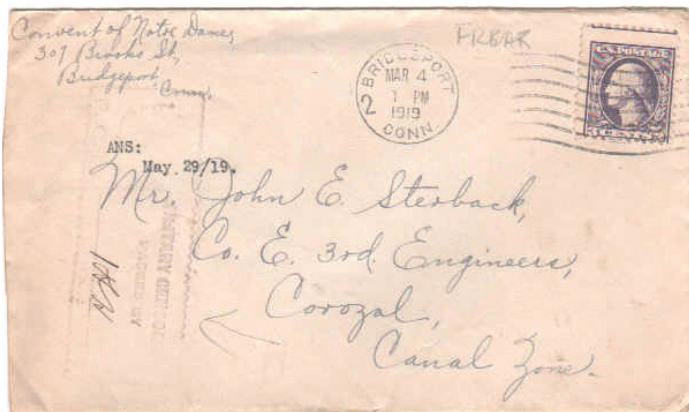 Convent of Notre Dame,
307 Brooks St,
Bridgeport,
Conn.
FRBAR
U.S. POSTAGE
BRIDGEPORT
MAR 4
1 PM
1919
CONN.
2
ANS:
May. 29/19.
Mr. John E. Sterback,
Co. E. 3rd. Engineers,
Corozal,
Canal Zone.
PASSED BY